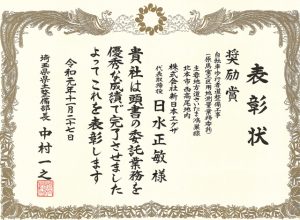 表彰状
奨励賞
自転車歩行者道整備工事
主要地方道さいたま鴻巣線
北本市西高尾地内
株式会社新日本エグザ
代表取締役 日水正敏 様
貴社は頭書の委託業務を
優秀な成績で完了させました
よってこれを表彰します
令和元年十一月二十七日
埼玉県県土整備部長 中村一之